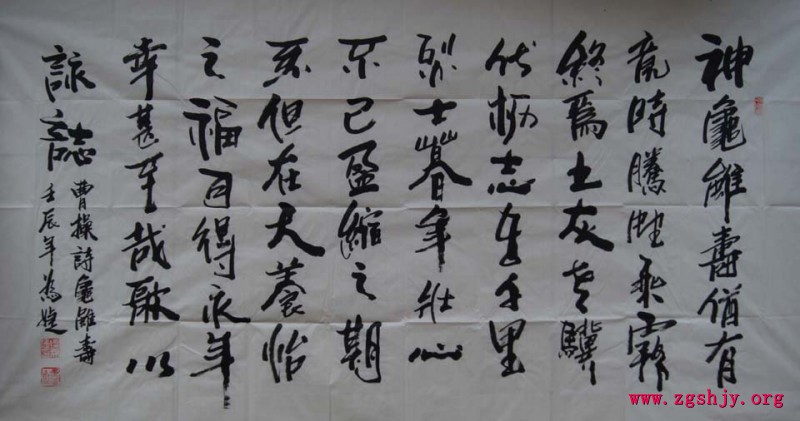 神龜雖壽猶有
竟時騰蛇乘霧
終為土灰老驥
伏枥志在千里
烈士暮年壯心
不已盈縮之期
不但在天養怡
之福可得永年
幸甚至哉歌以
詠誌
曹操詩龜雖壽
壬辰年
www.zgshjy.org